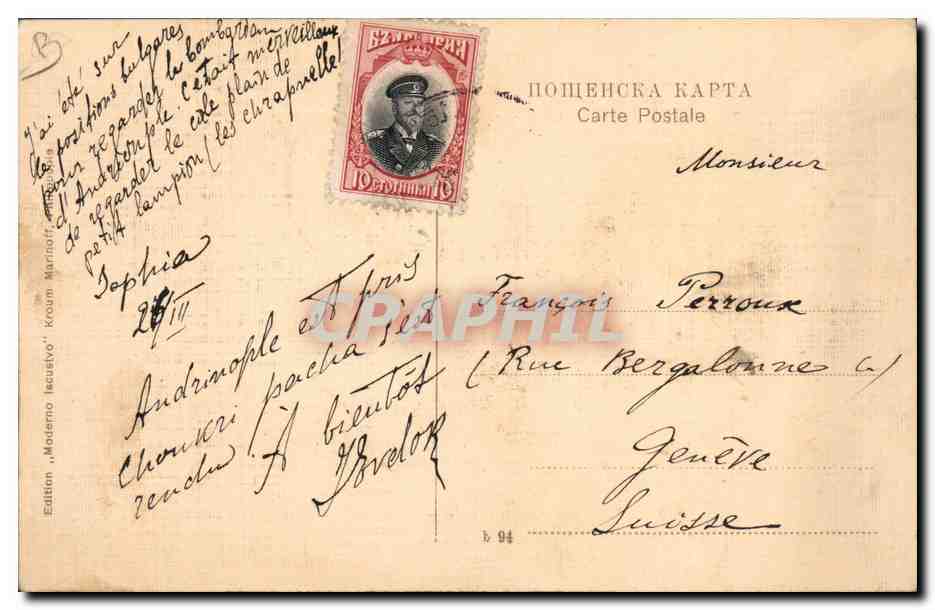 B
j'ai été sur
le positions bulgares
pour regarder le bombardam
d'Andrinople. c'était merveilleux
de regarder le ciel plain de
petit lampion (les chrapnelle!
Sophia
26/III
Andrinople est pris
choukri pacha s'est
rendu A bientôt
БЪЛГАРИЯ
10 СТОТИНКИ 10
ПОЩЕНСКА КАРТА
Carte Postale
Monsieur
François Perroux
(Rue Bergalonne
Genève
Suisse
Ь 94
Edition „Moderno Iscustvo" Kroum Marinoff,
CPARPHIL